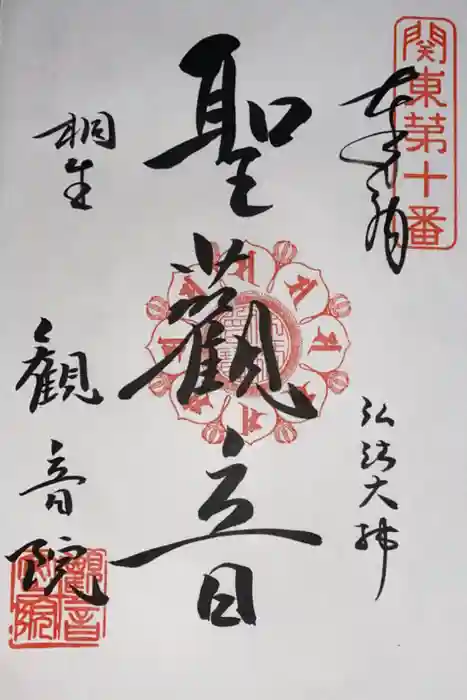 関東第十番
奉拝
弘法大師
聖觀音
桐生
観音院
觀音院